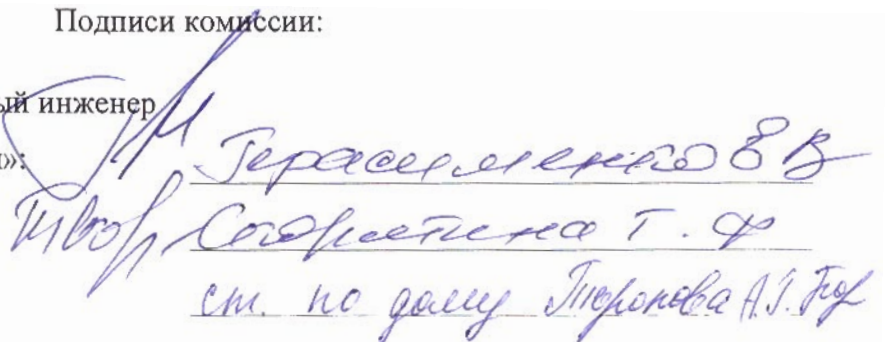 Подписи комиссии:
ый инженер
»:
Герасименко Е В
Т. Ф
ст. по дому Торопова А.Г.